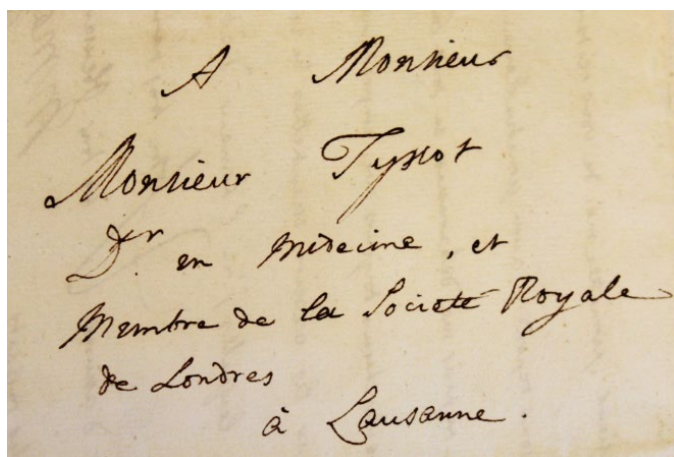 A Monsieur
Monsieur Tyssot
Dr. en Médecine, et
Membre de la Societé Royale
de Londres
à Lausanne.